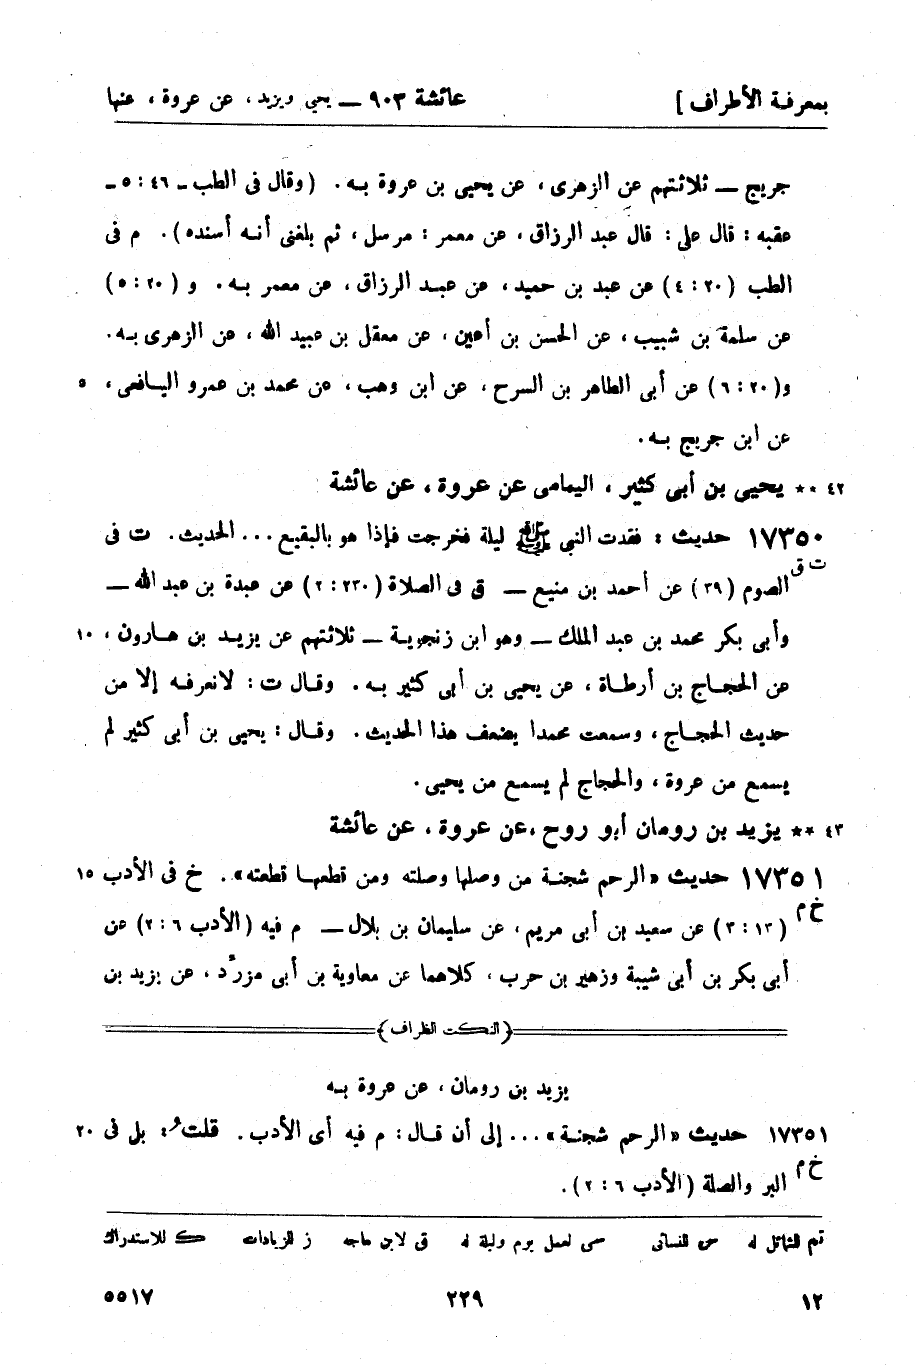 بمعرفة الأطراف] عائشة ٩٠٣ — يحيى ويزيد، عن عروة، عنها
جريج — ثلاثتهم عن الزهرى، عن يحيى بن عروة بـه. (وقال فى الطب ـ ٤٦: ٥ـ
عقبه: قال على: قال عبد الرزاق، عن معمر: مرسل، ثم بلغنى أنـه أسنده). م فى
الطب (٢٠: ٤) عن عبد بن حميد، عن عبـد الرزاق، عن معمر بـه. و (٢٠: ٥)
عن سلمة بن شبيب، عن الحسن بن أعين، عن معقل بن عبيد الله، عن الزهرى بـه.
و(٢٠: ٦) عن أبى الطاهر بن السرح، عن ابن وهب، عن محمد بن عمرو اليـافعى، ٥
عن ابن جريج بـه.
٤٢ ** يحيى بن أبى كثير، اليمامى عن عروة، عن عائشة
١٧٣٥٠ حديث: فقدت النبي ﷺ ليلة فخرجت فإذا هو بالبقيع... الحديث. ت فى
ت ق
الصوم (٣٩) عن أحمد بن منيع — ق فى الصلاة (٢٣٠: ٢) عن عبدة بن عبد الله —
وأبى بكر محمد بن عبد الملك — وهو ابن زنجويـة — ثلاثتهم عن يزيـد بن هـارون، ١٠
عن الحجـاج بن أرطـاة، عن يحيى بن أبى كثير بـه. وقـال ت: لا نعرفـه إلا من
حديث الحجـاج، وسمعت محمدا يضعف هذا الحديث. وقـال: يحيى بن أبى كثير لم
يسمع من عروة، والحجاج لم يسمع من يحيى.
٤٣ ** يزيد بن رومان أبو روح، عن عروة، عن عائشة
١٧٣٥١ حديث «الرحم شجنـة من وصلها وصلته ومن قطعهـا قطعته». خ فى الأدب ١٥
خ م
(١٣: ٣) عن سعيد بن أبى مريم، عن سليمان بن بلال — م فيه (الأدب ٦: ٢) عن
أبى بكر بن أبى شيبة وزهير بن حرب، كلاهما عن معاوية بن أبى مزرّد، عن يزيد بن
(النكت الظراف)
يزيد بن رومان، عن عروة بـه
١٧٣٥١ حديث «الرحم شجنـة»... إلى أن قـال: م فيه أى الأدب. قلت: بل فى ٢٠
خ م
البر والصلة (الأدب ٦: ٢).
تم للشمائل له س للنسائى سى لعمل يوم وليلة له ق لابن ماجه ز للزيادات ك للاستدراك
١٢ ٢٢٩ ٥٥١٧